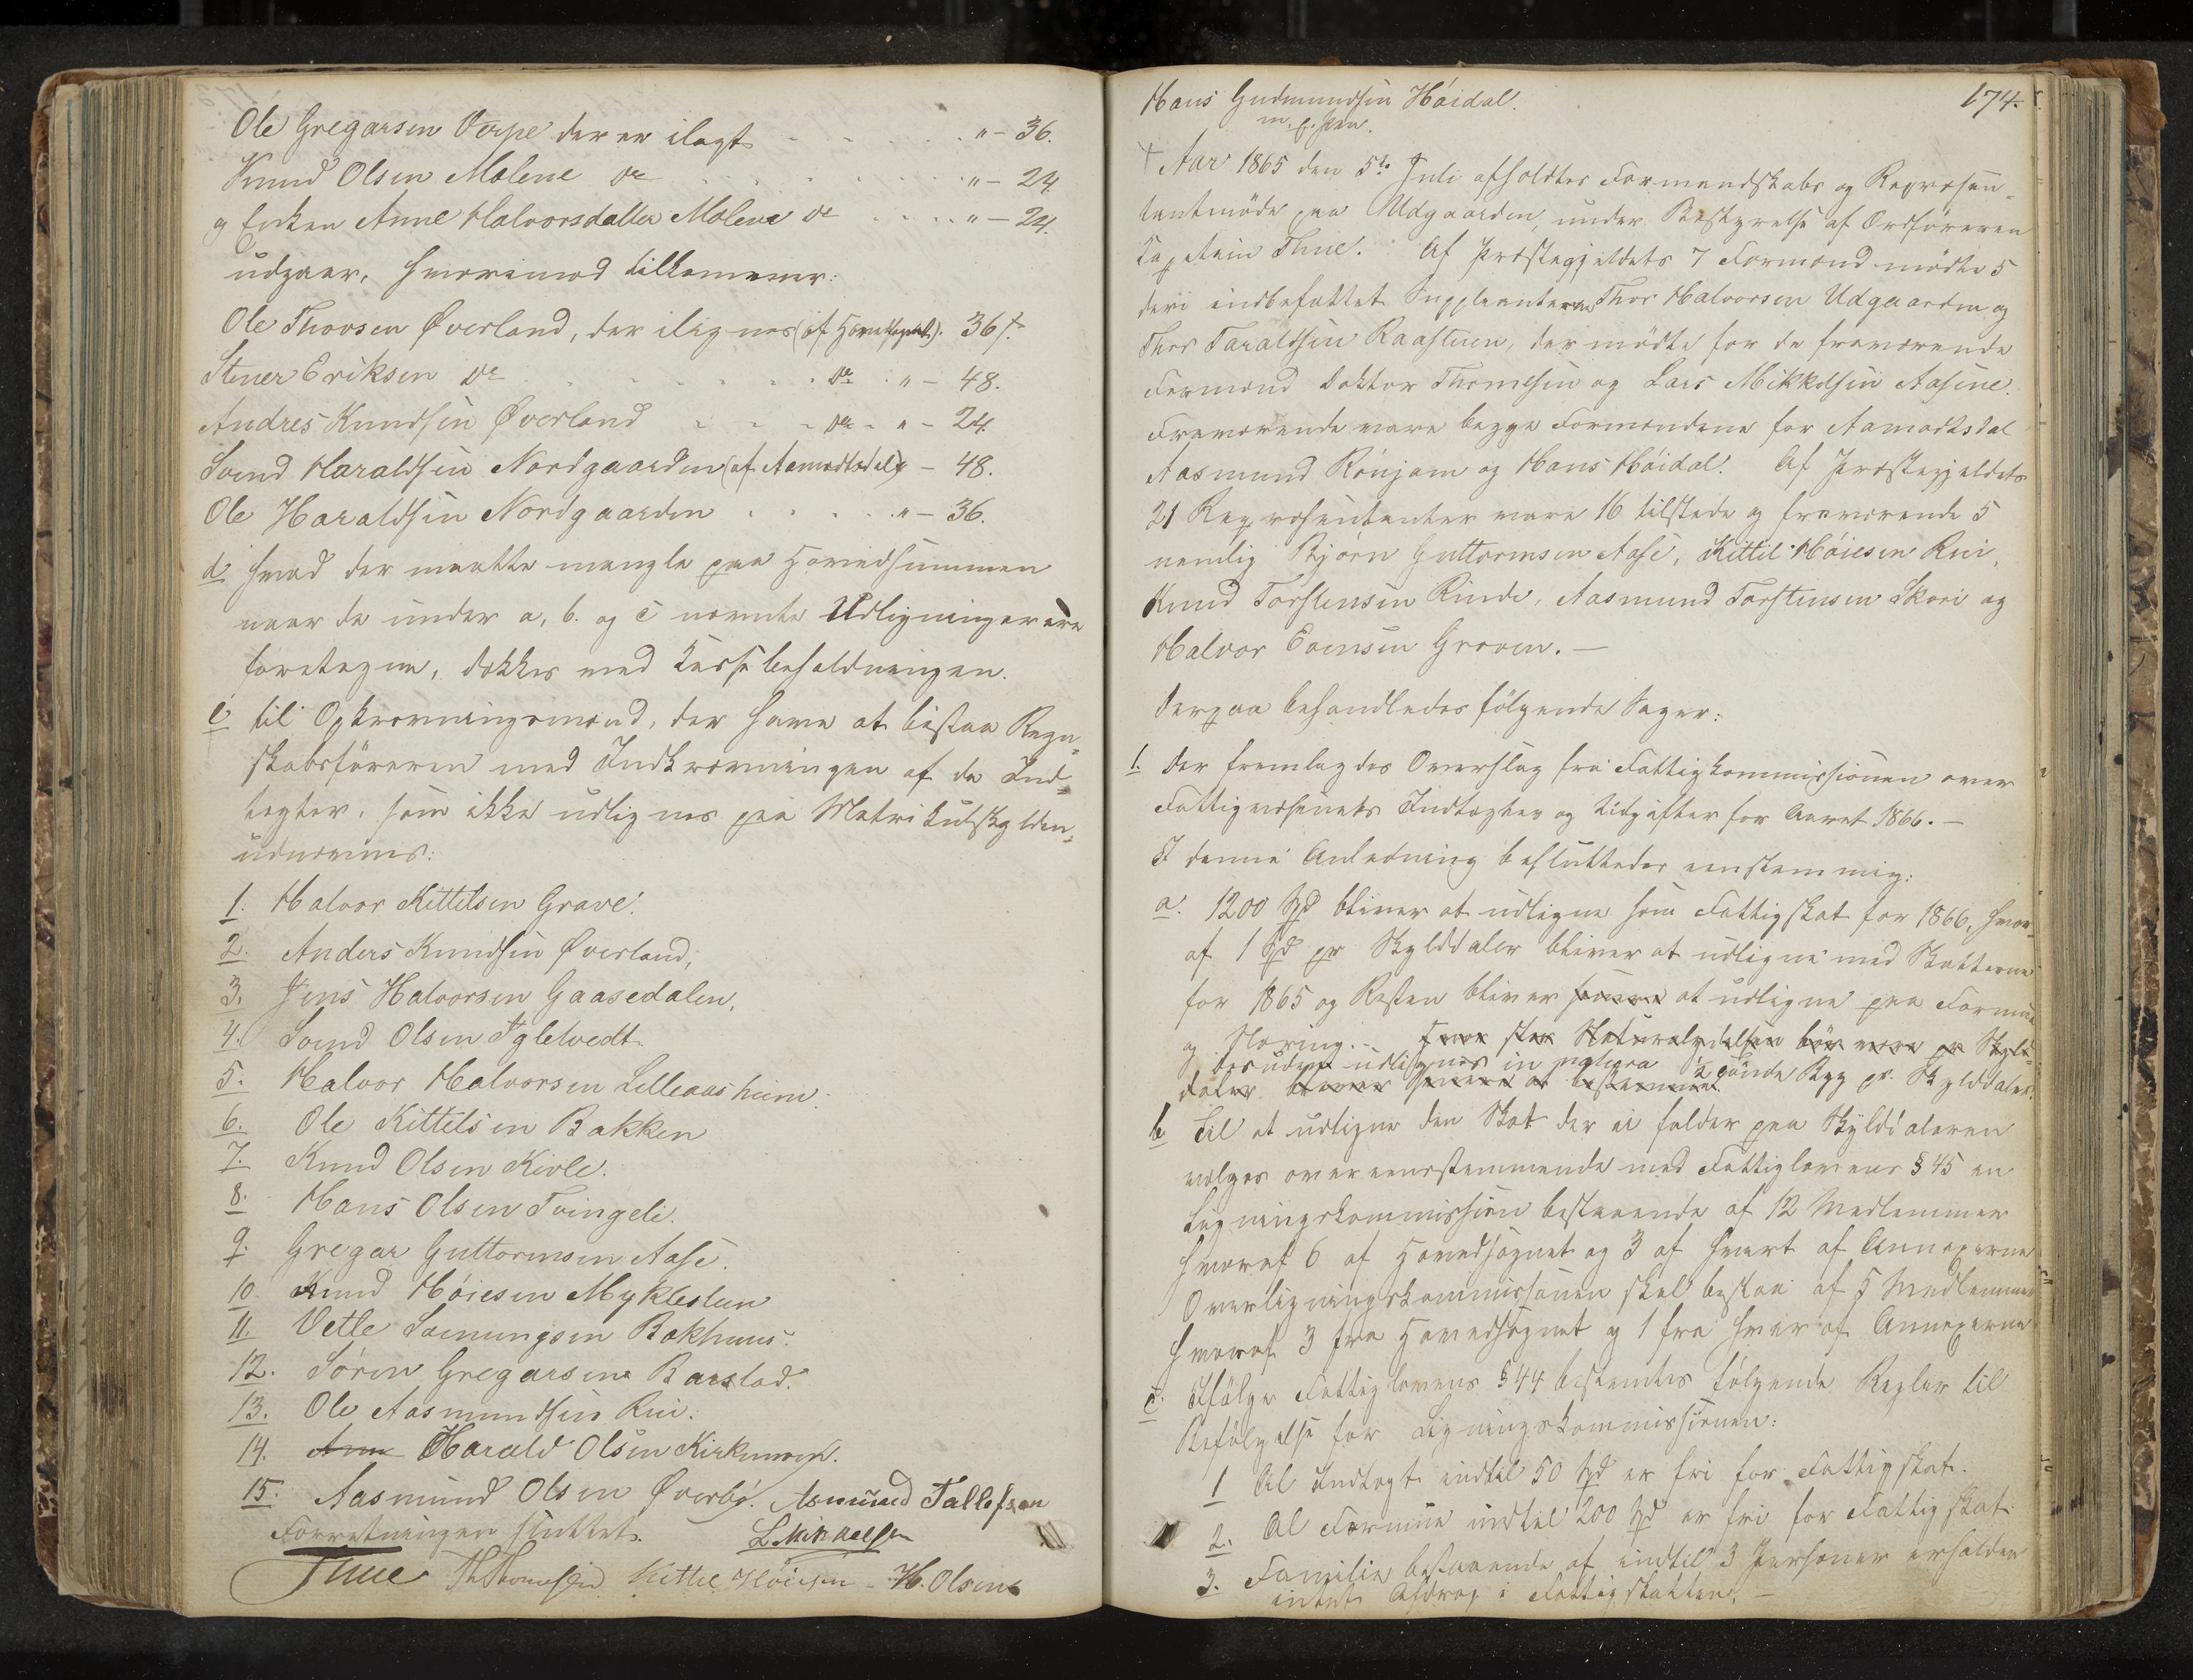 Ole Gregarsen Verpe der er ilagt . . . . . " – 36.
Knud Olsen Molene do . . . . . " – 24
og Enken Anne Halvorsdatter Molene do . . . . " – 24.
udgaar, hvorimod tilkommer:
Ole Thovsen Øverland, der ilignes (af Hovedsognet). 36 s.
Stener Eriksen do . . . . . do . " – 48.
Andres Knudsen Øverland . . . do . " – 24.
Svend Haraldsen Nordgaarden (af Aamodtsdal) " – 48.
Ole Haraldsen Nordgaarden . . . . . " – 36.
d hvad der maatte mangle paa Hovedsummen
naar de under a, b. og c nævnte Udligninger ere
foretagne, dækkes med Kassebeholdningen.
e til Opkrævningsmænd, der have at bistaa Regn-
skabsføreren med Indkrævningen af de Ind-
tægter, som ikke udlignes paa Matrikulskylden,
udnævnes:
1. Halvor Kittilsen Grave.
2. Anders Knudsen Øverland,
3. Jens Halvorsen Gaasedalen,
4. Svend Olsen Igletvedt.
5. Halvor Halvorsen Lilleaasheim.
6. Ole Kittelsen Bakken
7. Knud Olsen Kivle.
8. Hans Olsen Tvingeli.
9. Gregar Guttormsen Aase.
10. Knud Høiesen Myklestuen
11. Vetle Sveinungsen Bakhuus.
12. Søren Gregarsen Barstad.
13. Ole Aasmundsen Rui.
14. Harald Olsen
15. Aasmund Olsen Øverbø. Asmund Tallefsen
Forretningen sluttet. L Mikkelsen
Thue Th Thomesen Kittel Høiesen H. Olsen
Hans Gudmundsen Høidal. 174.
m. f. Pen.
Aar 1865 den 5te Juli afholdtes Formandskabs og Repræsen-
tantmøde paa Udgaarden, under Bestyrelse af Ordføreren
Capitain Thue. Af Præstegjeldets 7 Formænd mødte 5
deri indbefattet Suppleanterne Thor Halvorsen Udgaarden og
Thor Taraldsen Raastuen, der mødte for de fraværende
Formænd Doktor Thomesen og Lars Mikkelsen Aasine.
Fraværende vare begge Formændene for Aamodtsdal
Aasmund Rønjom og Hans Høidal. Af Præstegjeldets
21 Repræsentanter vare 16 tilstede og fraværende 5
nemlig Bjørn Guttormsen Aase, Kittil Høiesen Rui,
Knud Torstensen Rinde, Aasmund Torstensen Skori og
Halvor Evensen Groven. –
Derpaa behandledes følgende Sager:
1. Der fremlagdes Overslag fra Fattigkommissionen over
Fattigvæsenets Indtægter og Udgifter for Aaret 1866. –
I denne Anledning besluttedes eenstemmig:
a. 1200 Spd bliver at udligne som Fattigskat for 1866, hvor-
af 1 Spd pr Skylddaler bliver at udligne med Skatterne
for 1865 og Resten bliver senere at udligne paa Formue
og Næring. – Hvor stor Naturalydelsen bør være pr Skyld-
desuden udlignes in natura ½ Tønde Byg pr. Skylddaler.
daler bliver senere at bestemme
b Til at udligne den Skat der ei falder paa Skylddaleren
vælges overeensstemmende med Fattiglovens § 45 en
Ligningskommission bestaaende af 12 Medlemmer
hvoraf 6 af Hovedsognet og 3 af hvert af Annexerne
Overligningskommissionen skal bestaa af 5 Medlemmer
hvoraf 3 fra Hovedsognet og 1 fra hver af Annexerne
c. Ifølge Fattiglovens § 44 bestemtes følgende Regler til
Befølgelse for Ligningskommissionen:
1 Al Indtægt indtil 50 Spd er fri for Fattigskat.
2. Al Formue indtil 200 Spd er fri for Fattigskat
3. Familie bestaaende af indtil 3 Personer erholder
intet Afdrag i Fattigskatten. –